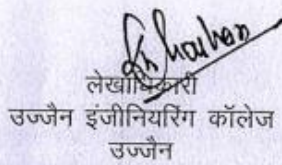 लेखाधिकारी
उज्जैन इंजीनियरिंग कॉलेज
उज्जैन